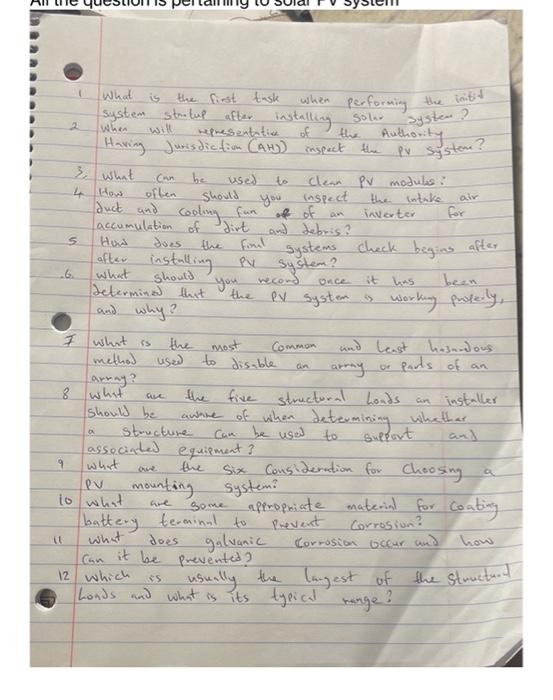 All the question is pertaining to solar PV system
1 What is the first task when performing the initial
system startup after installing solar system?
2 When will representative of the Authority
Having Jurisdiction (AHJ) inspect the PV system?
3, What can be used to clean PV modules?
4 How often should you inspect the intake air
duct and cooling fan of of an inverter for
accumulation of dirt and debris?
5 How does the final systems check begins after
after installing PV system?
6. What should you record once it has been
determined that the PV system is working properly,
and why?
7 What is the most common and least hazardous
method used to disable an array or parts of an
array?
8 What are the five structural loads an installer
should be aware of when determining whether
a structure can be used to support and
associated equipment?
9 What are the six consideration for choosing a
PV mounting system?
10 What are some appropriate material for coating
battery terminal to prevent corrosion?
11 What does galvanic corrosion occur and how
can it be prevented?
12 Which is usually the largest of the structural
Loads and what is its typical range?